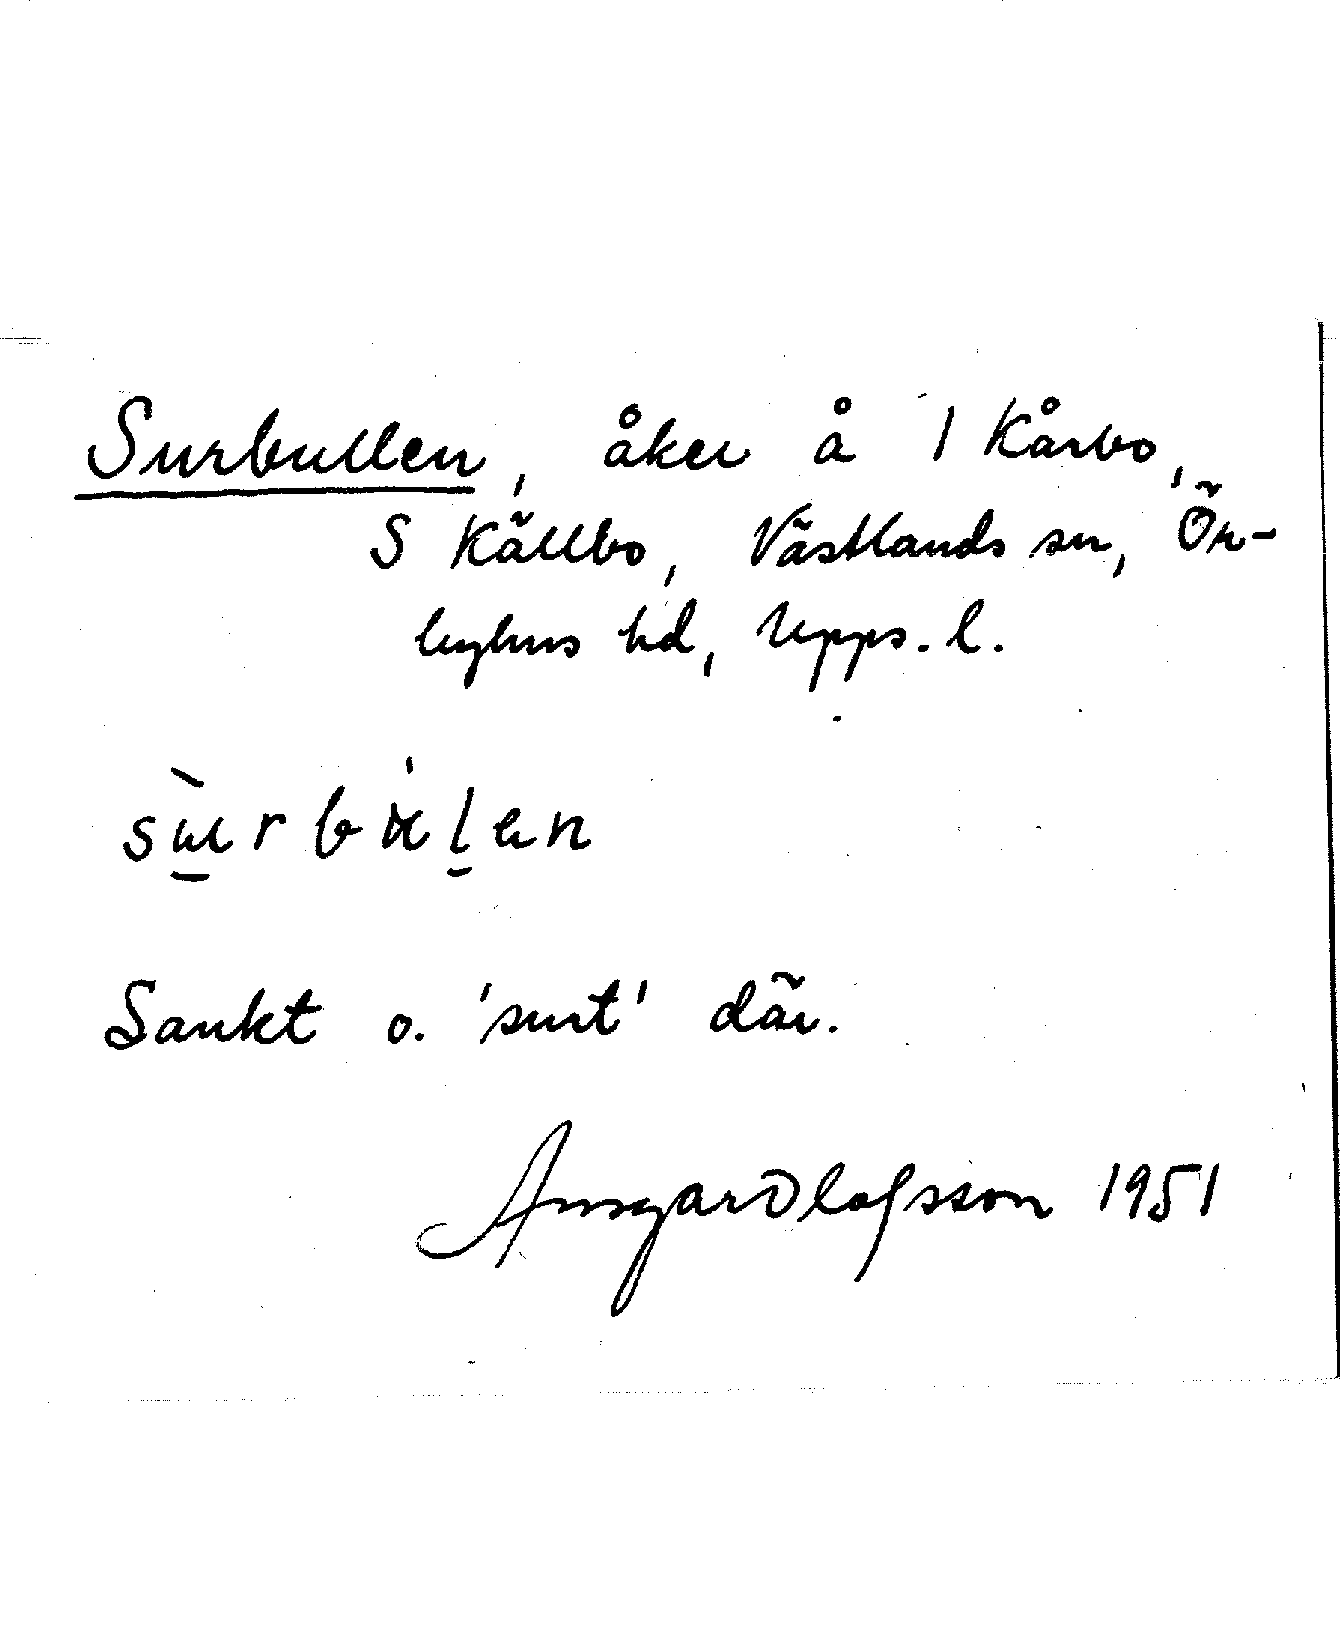 Surbullen, åker å 1 Kårbo,
S Källbo, Västlands sn, Ör-
byhus hd, Upps. l.
Sankt o. 'surt' där.
Ansgar Olofsson 1951